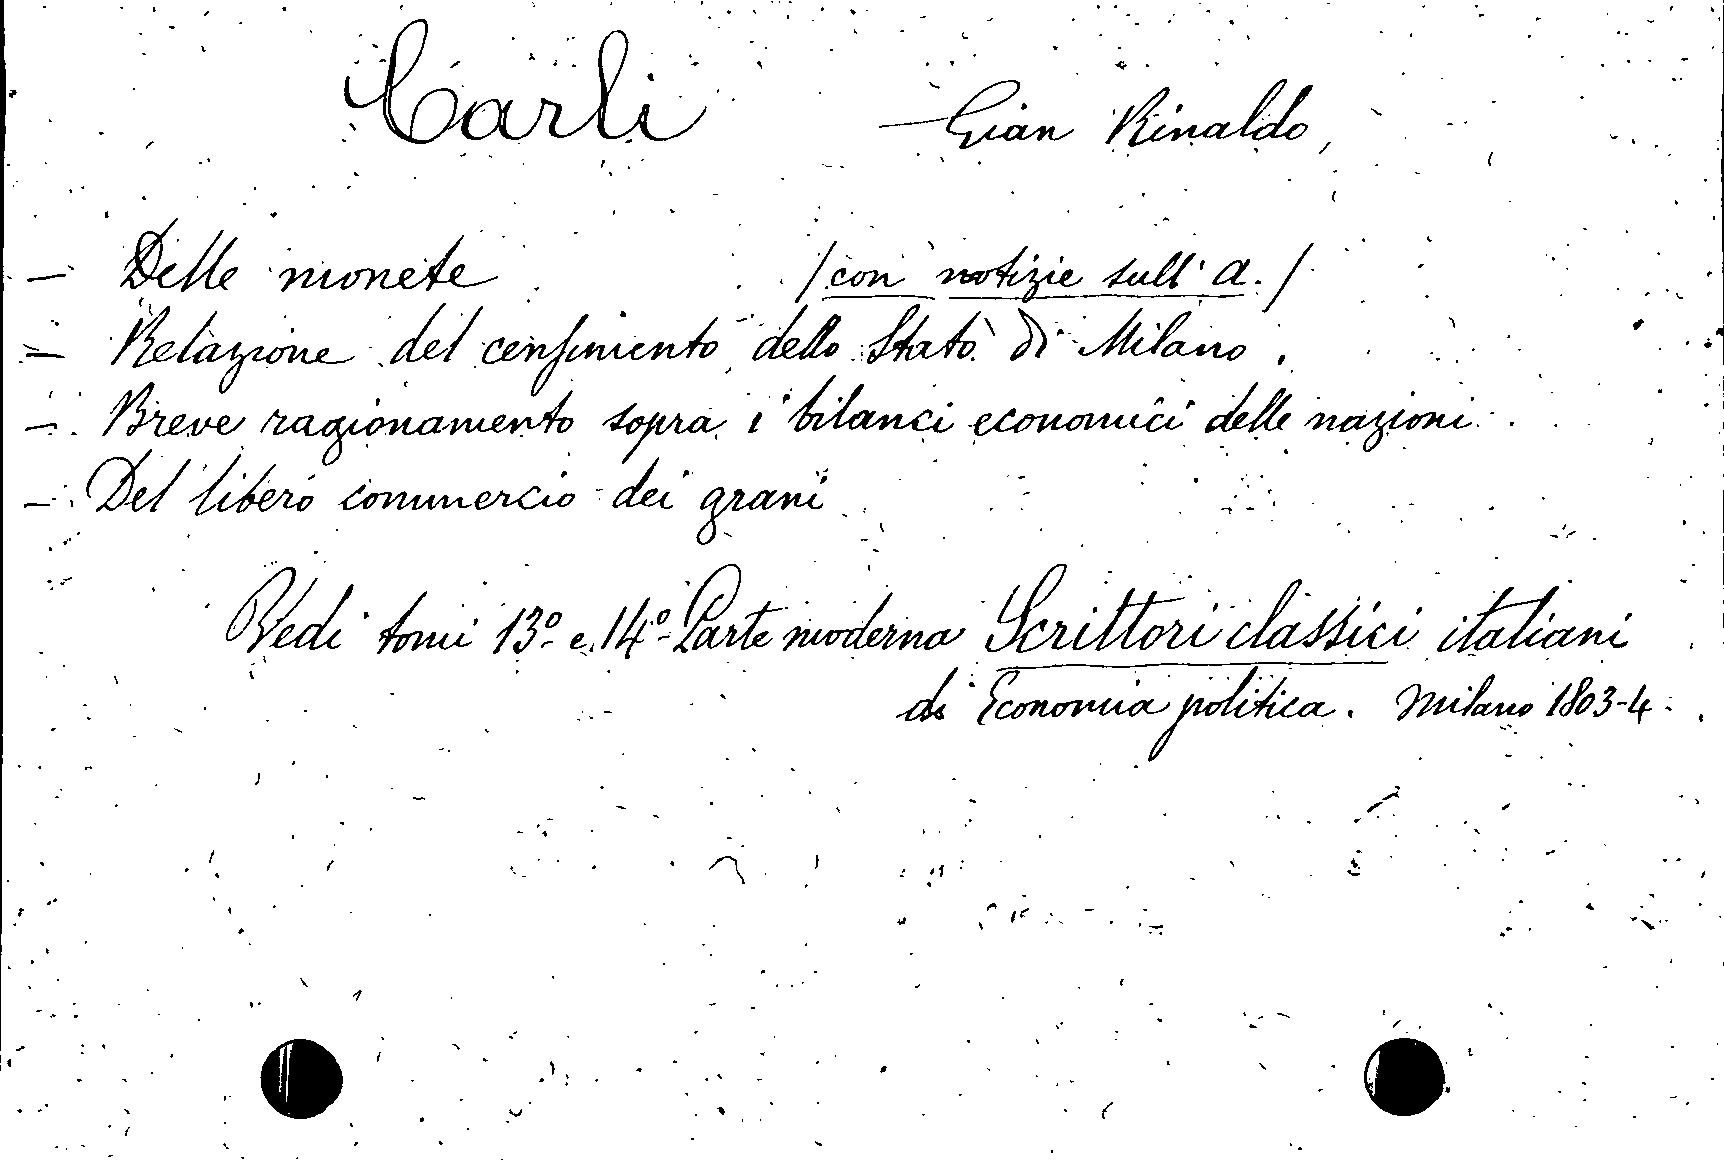 Carli — Gian Rinaldo,
— Delle monete /con notizie sull' a./
— Relazione del censimento dello Stato di Milano.
— Breve ragionamento sopra i bilanci economici delle nazioni
— Del libero commercio dei grani
Vedi tomi 13º e 14º Parte moderna Scrittori classici italiani
di Economia politica. Milano 1803-4.